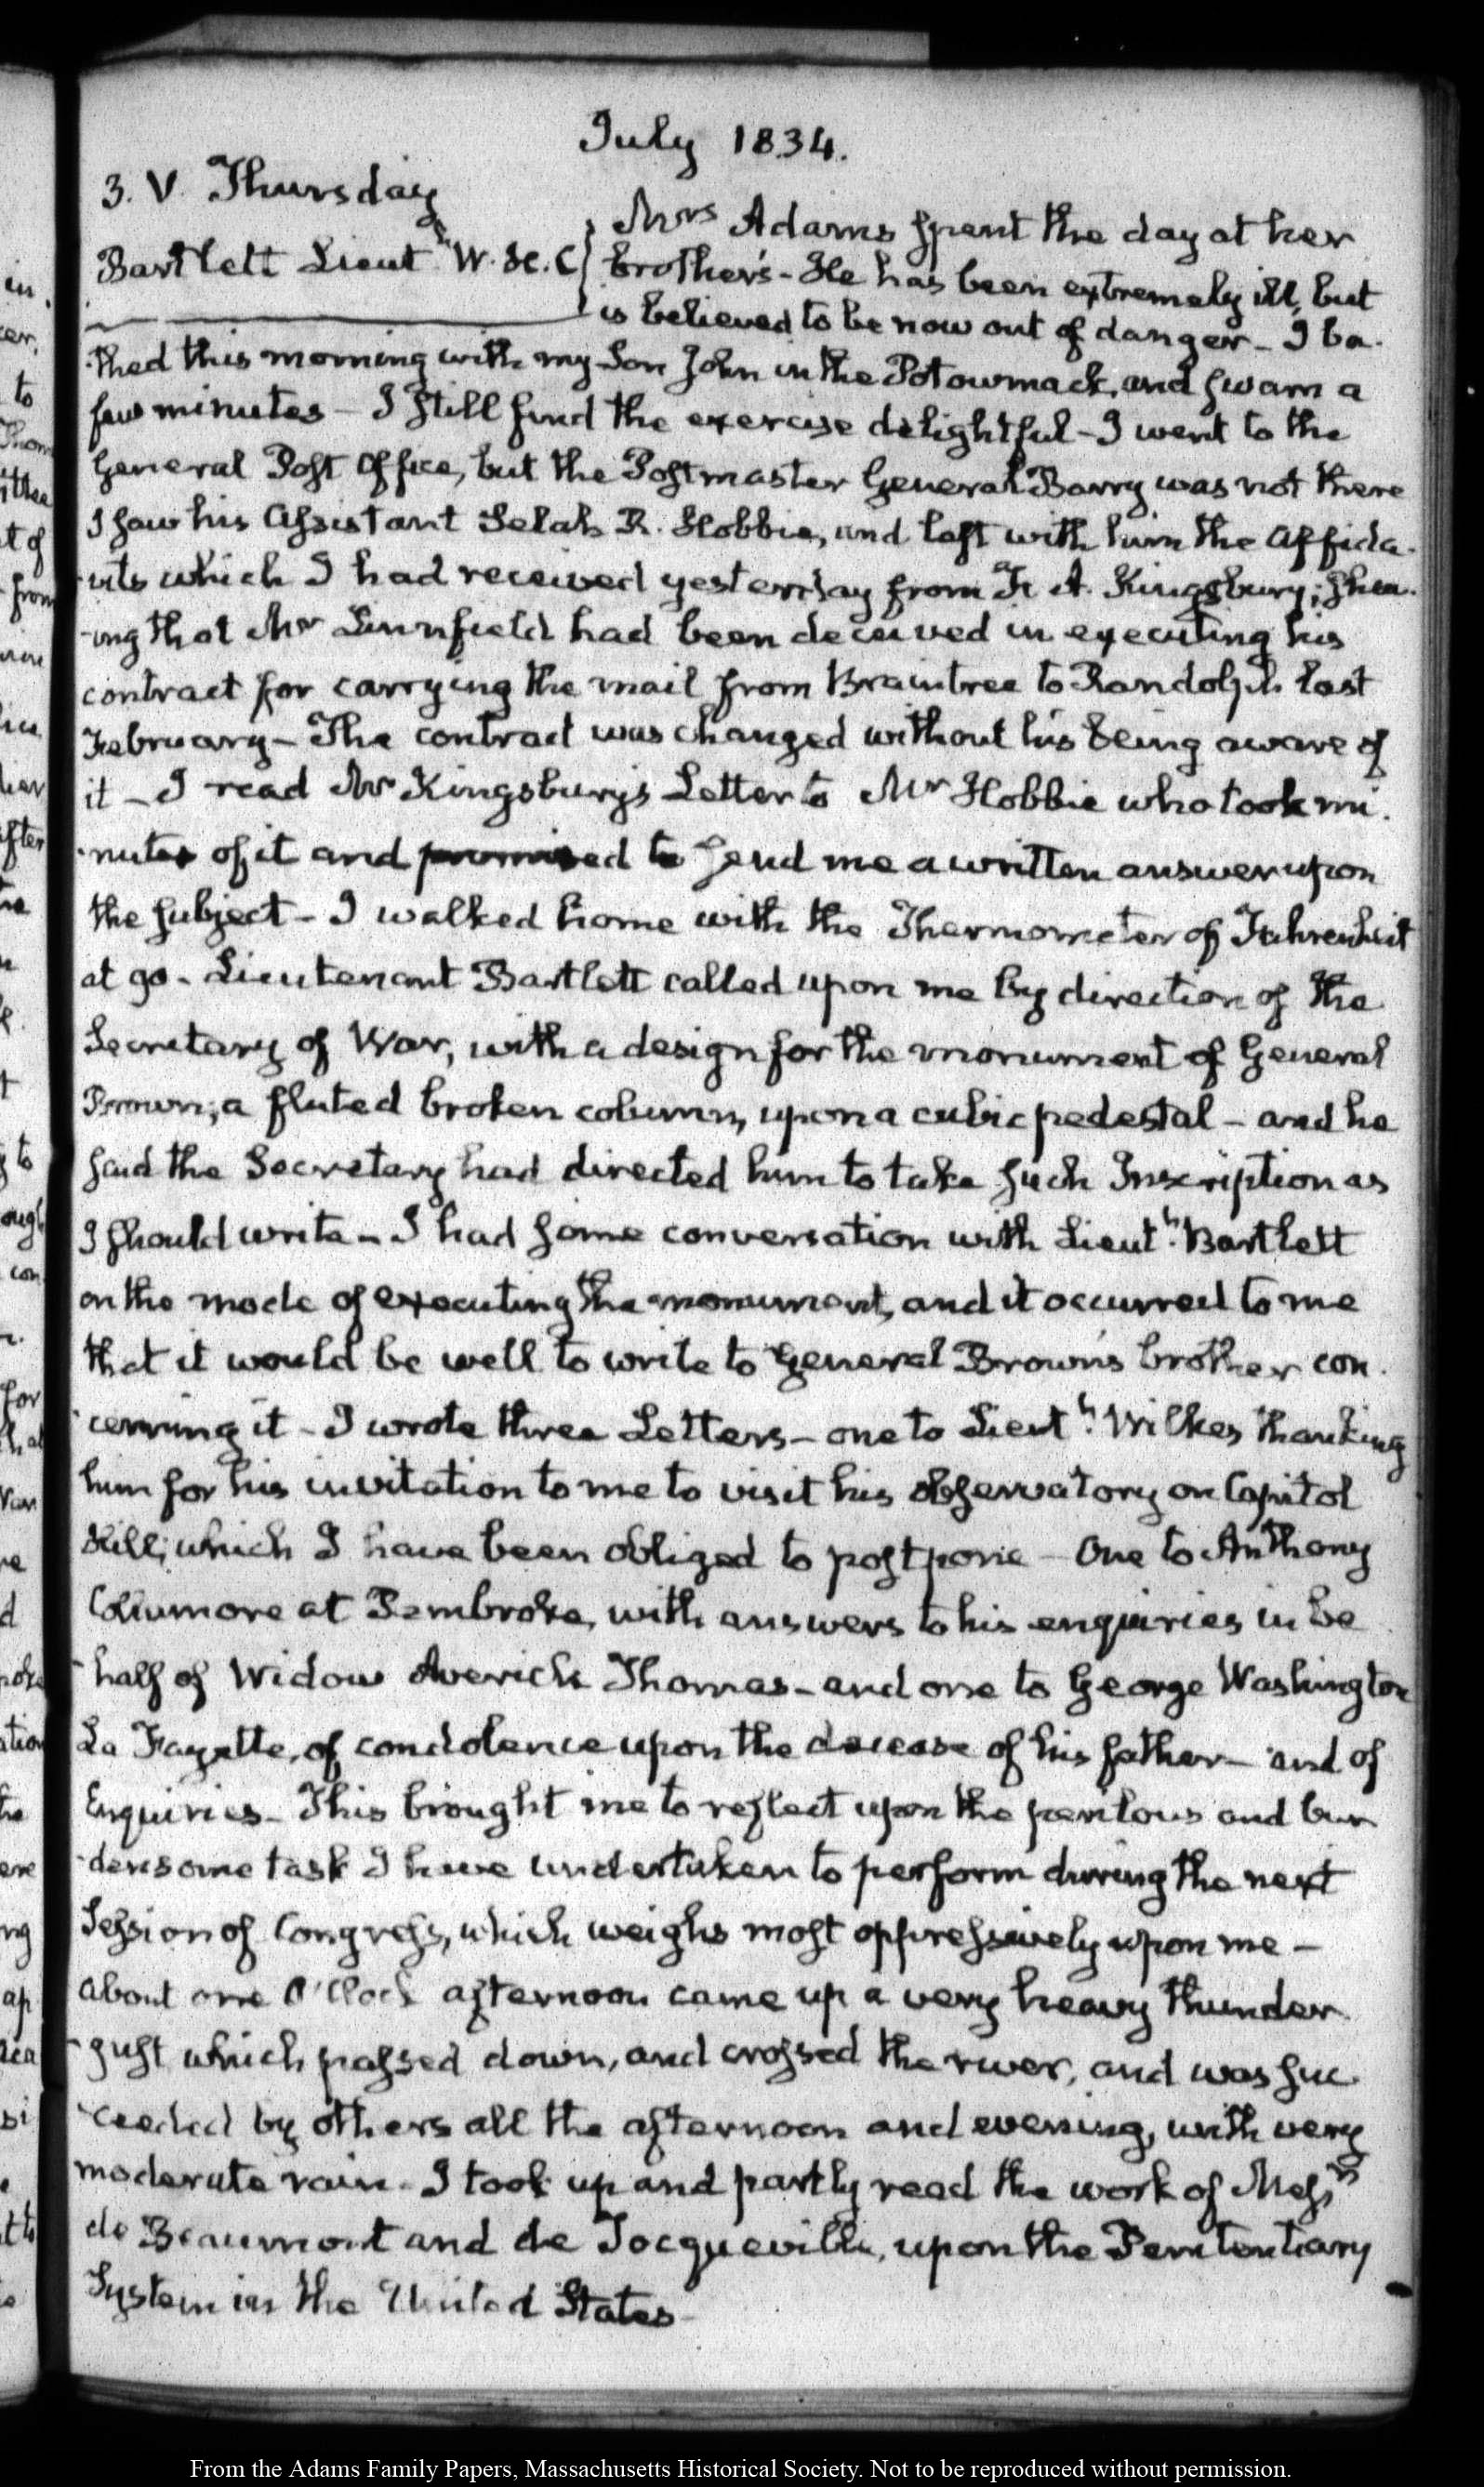 July 1834.
3. V. Thursday
Bartlett Lieutt W. H. C
Mrs Adams spent the day at her
brother's - He has been extremely ill, but
is believed to be now out of danger - I ba-
-thed this morning with my Son John in the Potowmack, and swam a
few minutes - I still find the exercise delightful - I went to the
General Post Office, but the Postmaster General Barry was not there
I saw his Assistant Selah R. Hobbie, and left with him the Affida-
-vits which I had received yesterday from F. A. Kingsbury; shew-
-ing that Mr Linnfield had been deceived in executing his
contract for carrying the mail from Braintree to Randolph last
February - The contract was changed without his being aware of
it - I read Mr Kingsbury's Letter to Mr Hobbie who took mi-
-nutes of it and promised to send me a written answer upon
the subject - I walked home with the Thermometer of Fahrenheit
at 90 - Lieutenant Bartlett called upon me by direction of the
Secretary of War, with a design for the monument of General
Brown; a fluted broken column, upon a cubic pedestal - and he
said the Secretary had directed him to take such Inscription as
I should write - I had some conversation with Lieutt. Bartlett
on the mode of executing the monument, and it occurred to me
that it would be well to write to General Brown's brother con-
-cerning it - I wrote three Letters - one to Lieutt. Wilkes thanking
him for his invitation to me to visit his observatory on Capitol
Hill; which I have been obliged to postpone - One to Anthony
Collamore at Pembroke, with answers to his enquiries in be
-half of Widow Averick Thomas - and one to George Washington
La Fayette, of condolence upon the decease of his father - and of
Enquiries - This brought me to reflect upon the perilous and bur
-densome task I have undertaken to perform during the next
Session of Congress, which weighs most oppressively upon me -
about one O'Clock afternoon came up a very heavy thunder
-gust which passed down, and crossed the river, and was suc-
-ceeded by others all the afternoon and evening, with very
moderate rain - I took up and partly read the work of Messrs
de Beaumont and de Tocqueville, upon the Penitentiary
System in the United States -
From the Adams Family Papers, Massachusetts Historical Society. Not to be reproduced without permission.